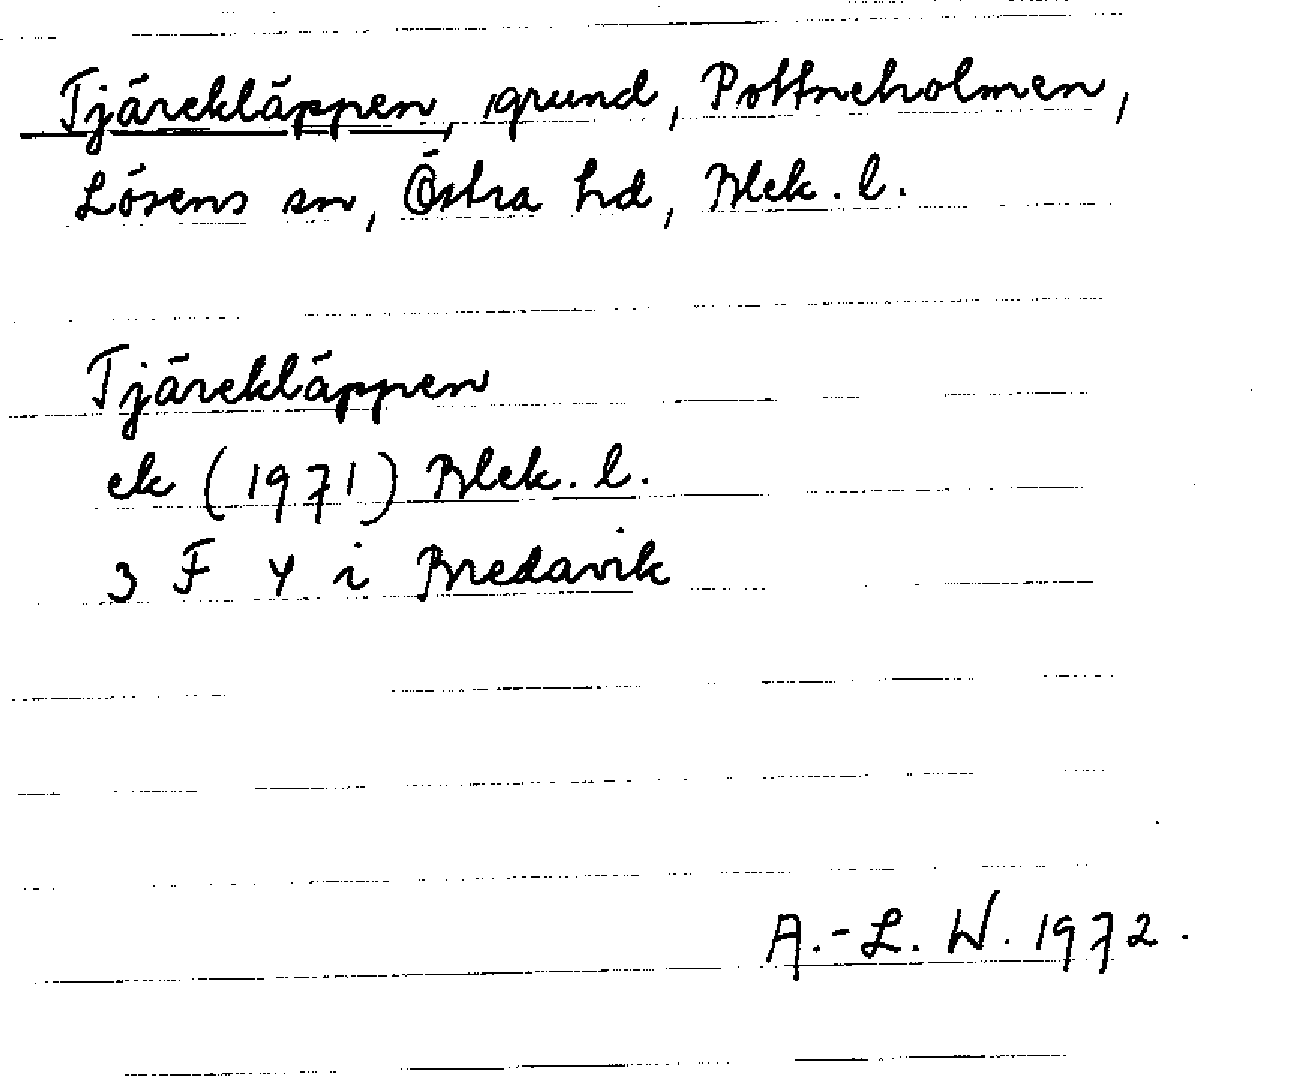 Tjärekläppen, grund, Pottneholmen,
Lösens sn, Östra hd, Blek. l.
Tjärekläppen
ek (1971) Blek. l.
3 F Y i Bredavik
A.-L. W. 1972.